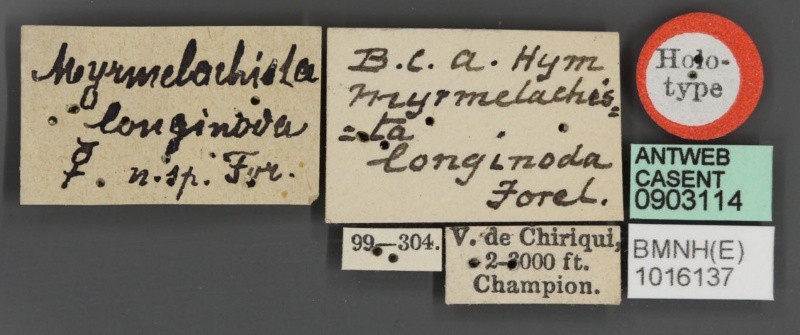 Myrmelachista
longinoda
☿. n. sp. For.
B. C. A. Hym
Myrmelachis=
=ta
longinoda
Forel.
Holo-
type
ANTWEB
CASENT
0903114
99—304.
V. de Chiriqui,
2-3000 ft.
Champion.
BMNH(E)
1016137